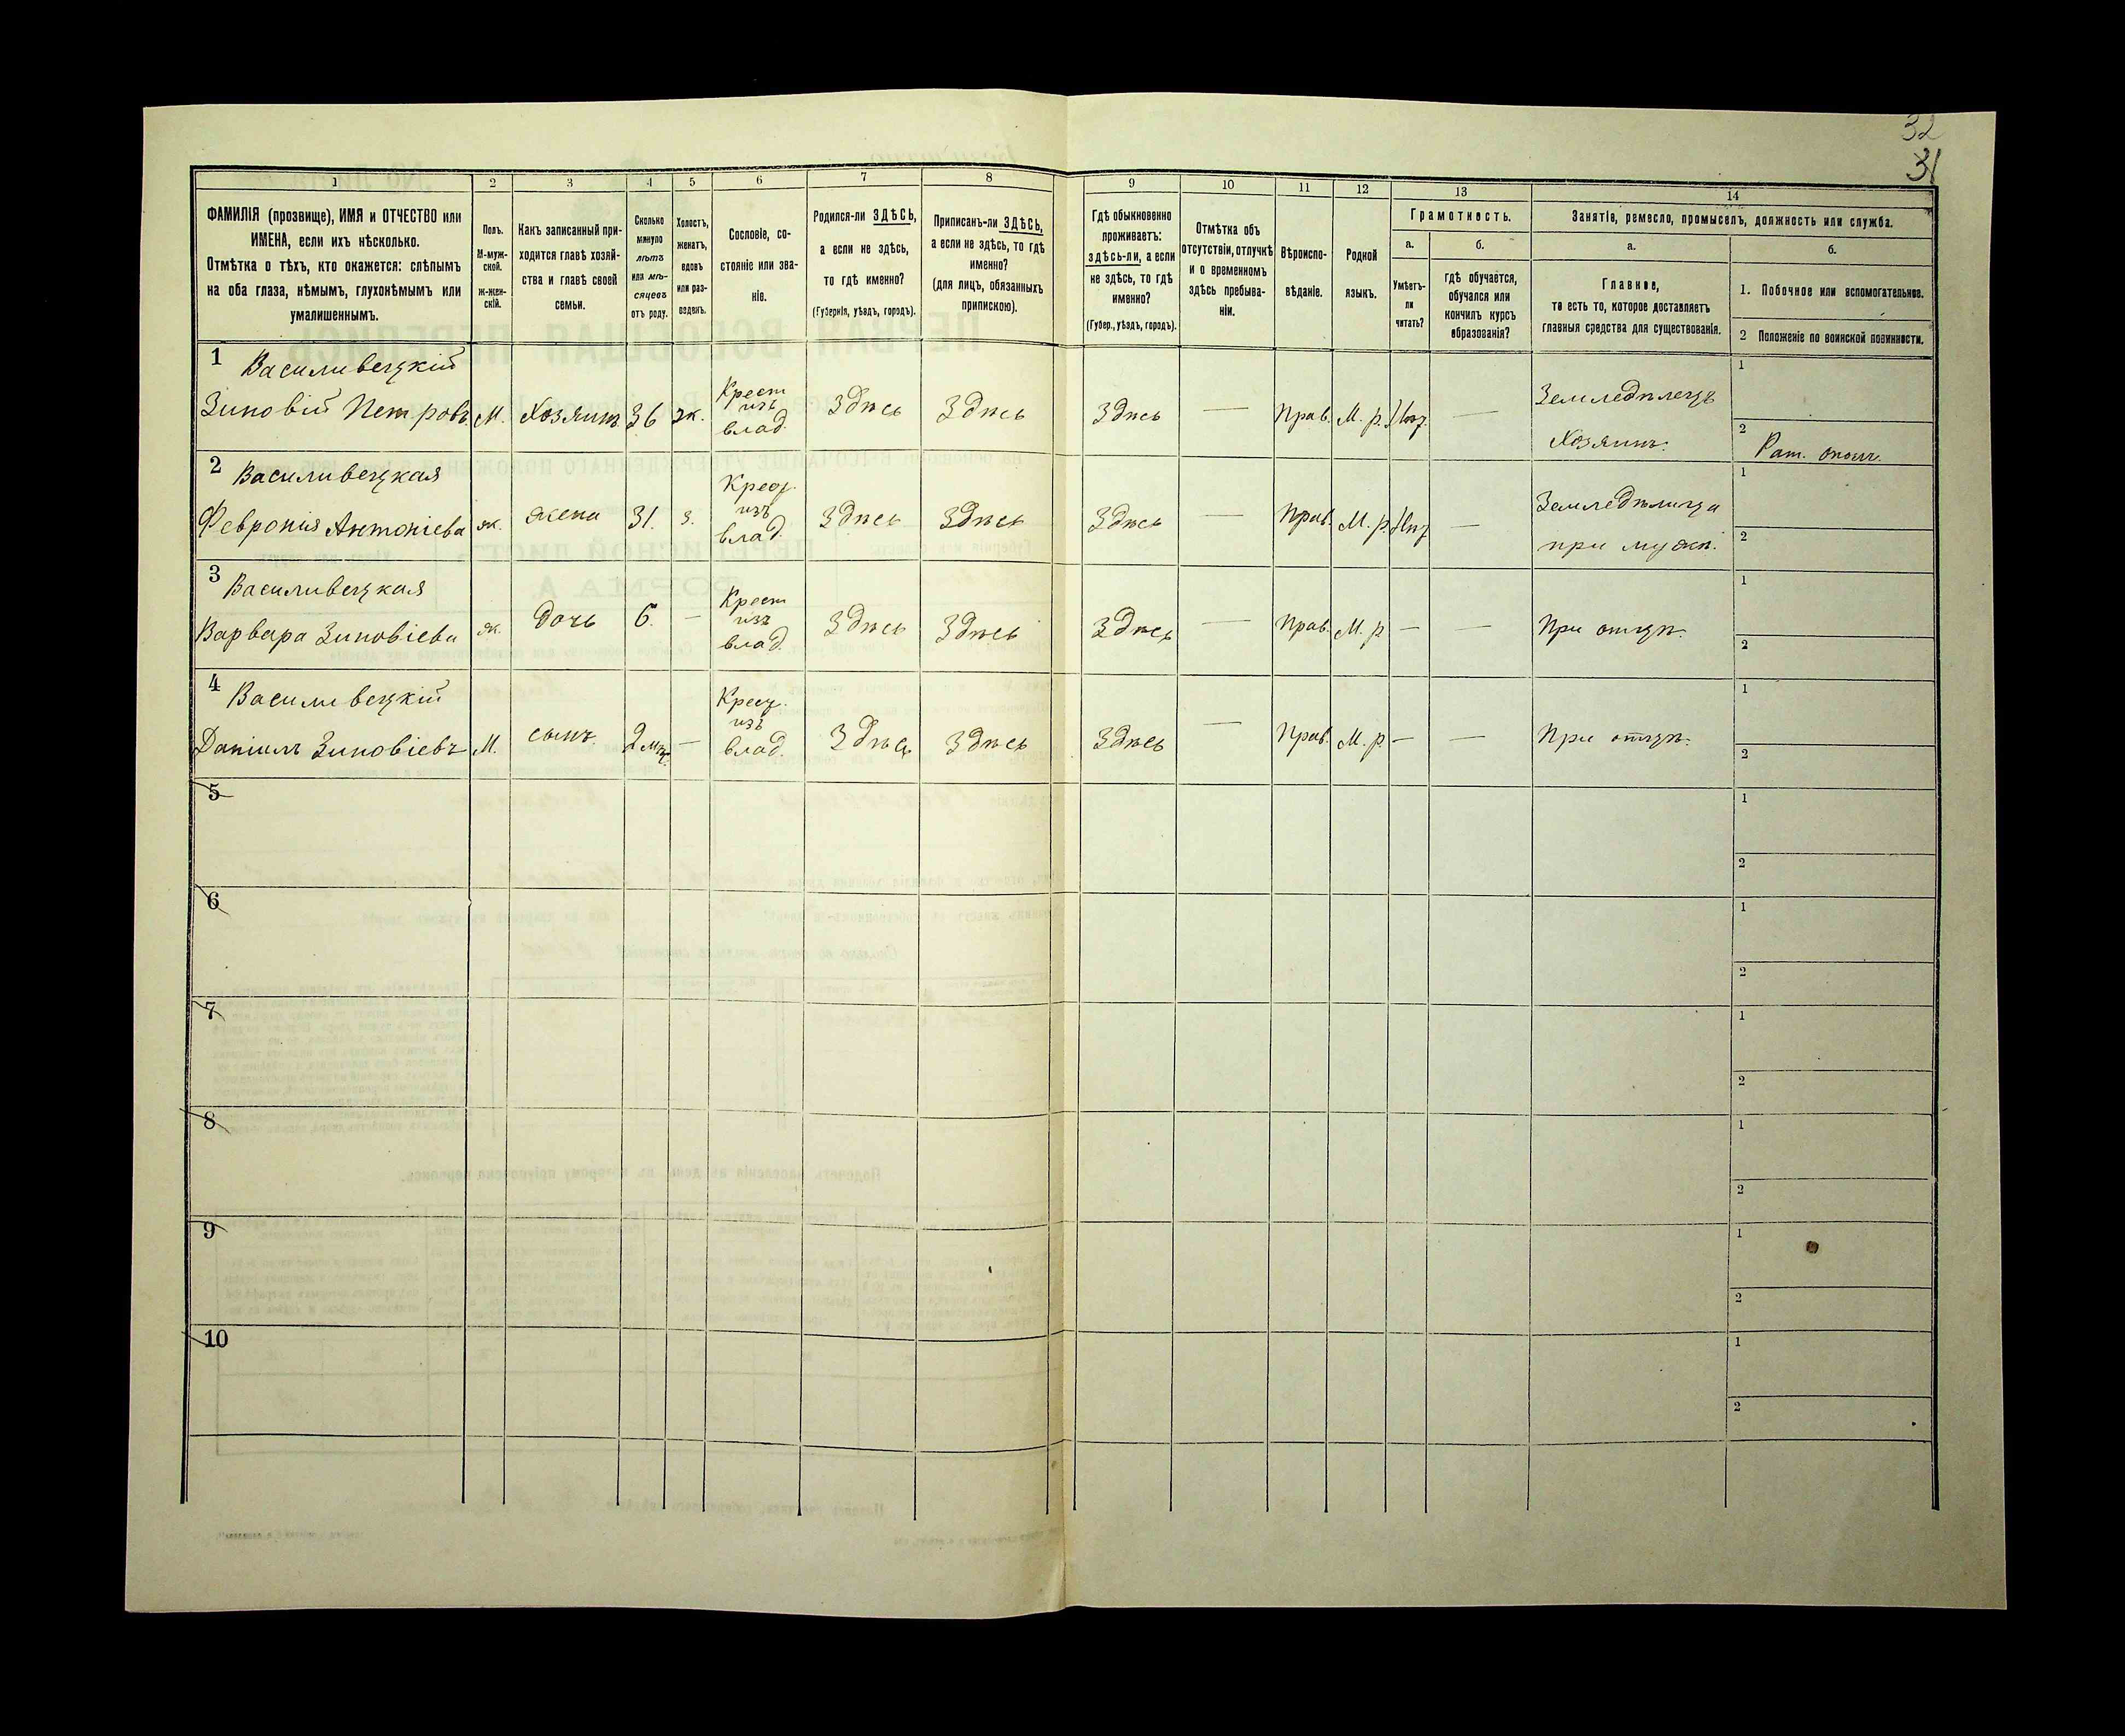 32
31
1 2 3 4 5 6 7 8 9 10 11 12 13 14
ФАМИЛІЯ (прозвище), ИМЯ и ОТЧЕСТВО или
ИМЕНА, если ихъ нѣсколько.
Отмѣтка о тѣхъ, кто окажется: слѣпымъ
на оба глаза, нѣмымъ, глухонѣмымъ или
умалишеннымъ.
Полъ.
М-муж-
ской.
ж-жен-
скій.
Какъ записанный при-
ходится главѣ хозяй-
ства и главѣ своей
семьи.
Сколько
минуло
лѣтъ
или мѣ-
сяцевъ
отъ роду.
Холостъ,
женатъ,
вдовъ
или раз-
веденъ.
Сословіе, со-
стояніе или зва-
ніе.
Родился-ли ЗДѢСЬ,
а если не здѣсь,
то гдѣ именно?
(Губернія, уѣздъ, городъ).
Приписанъ-ли ЗДѢСЬ,
а если не здѣсь, то гдѣ
именно?
(для лицъ, обязанныхъ
припискою).
Гдѣ обыкновенно
проживаетъ:
здѣсь-ли, а если
не здѣсь, то гдѣ
именно?
(Губер., уѣздъ, городъ).
Отмѣтка объ
отсутствіи, отлучкѣ
и о временномъ
здѣсь пребыва-
ніи.
Вѣроиспо-
вѣданіе.
Родной
языкъ.
Грамотность.
а.
Умѣетъ-
ли
читать?
б.
гдѣ обучается,
обучался или
кончилъ курсъ
образованія?
Занятіе, ремесло, промыселъ, должность или служба.
а.
Главное,
то есть то, которое доставляетъ
главныя средства для существованія.
б.
1. Побочное или вспомогательное.
2 Положеніе по воинской повинности.
1 Василивецкій
Зиновій Петровъ М. Хозяинъ 36 ж. Крест изъ влад. Здѣсь Здѣсь Здѣсь — Прав. М. р. Нѣт. — Земледѣлецъ Хозяинъ. 1
2 Рат. ополч.
2 Василивецкая
Февронія Антоніева ж. жена 31. з. Крест. изъ влад. Здѣсь Здѣсь Здѣсь — Прав. М. р. Нѣт — Земледѣлица при мужѣ. 1
2
3 Василивецкая
Варвара Зиновіева ж. дочь 6. — Крест изъ влад. Здѣсь Здѣсь Здѣсь — Прав. М. р — — При отцѣ. 1
2
4 Василивецкій
Даніилъ Зиновіевъ М. сынъ. 2 мѣ. — Крест. изъ влад. Здѣсь Здѣсь Здѣсь — Прав. М. р. — — При отцѣ. 1
2
5 1
2
6 1
2
7 1
2
8 1
2
9 1
2
10 1
2